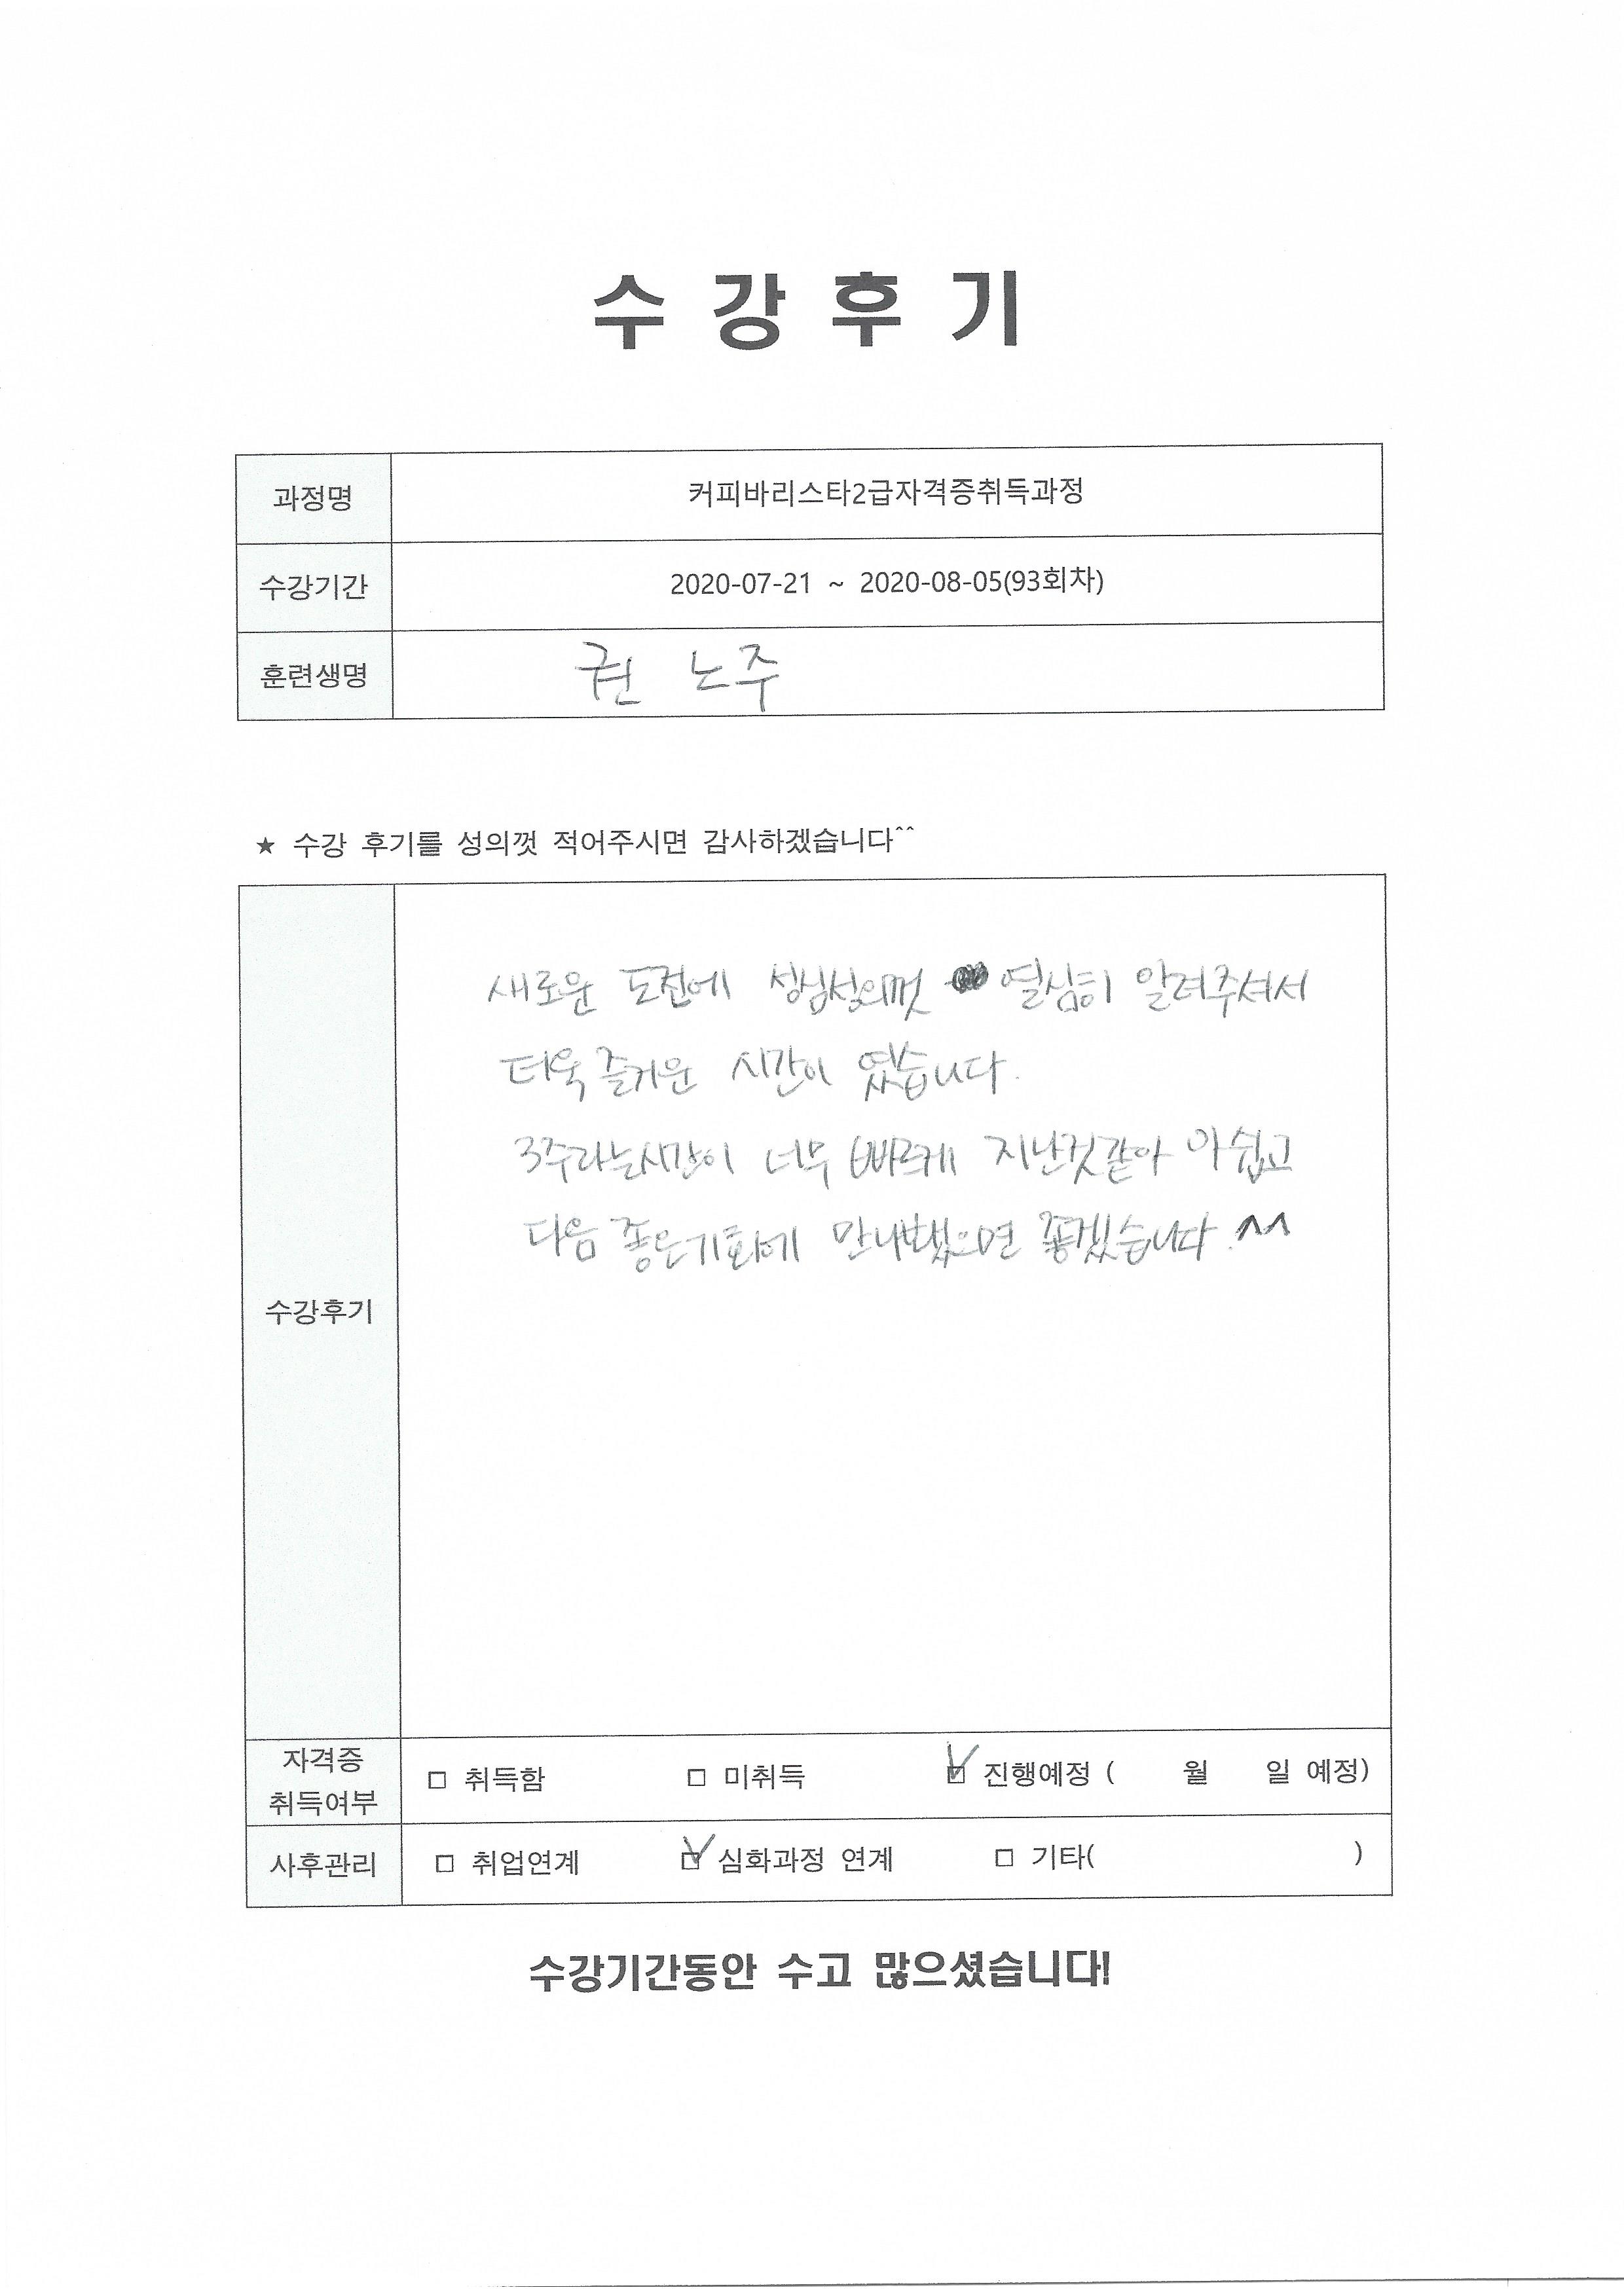 수 강 후 기
과정명 커피바리스타2급자격증취득과정
수강기간 2020-07-21 ~ 2020-08-05(93회차)
훈련생명 권 노주
★ 수강 후기를 성의껏 적어주시면 감사하겠습니다^^
새로운 도전에 성심성의껏 열심히 알려주셔서
더욱 즐거운 시간이 였습니다.
3주라는시간이 너무 빠르게 지난것같아 아쉽고
다음 좋은기회에 만나뵜으면 좋겠습니다.^^
수강후기
자격증
취득여부
□ 취득함 □ 미취득 ☑ 진행예정 ( 월 일 예정)
사후관리 □ 취업연계 ☑ 심화과정 연계 □ 기타( )
수강기간동안 수고 많으셨습니다!